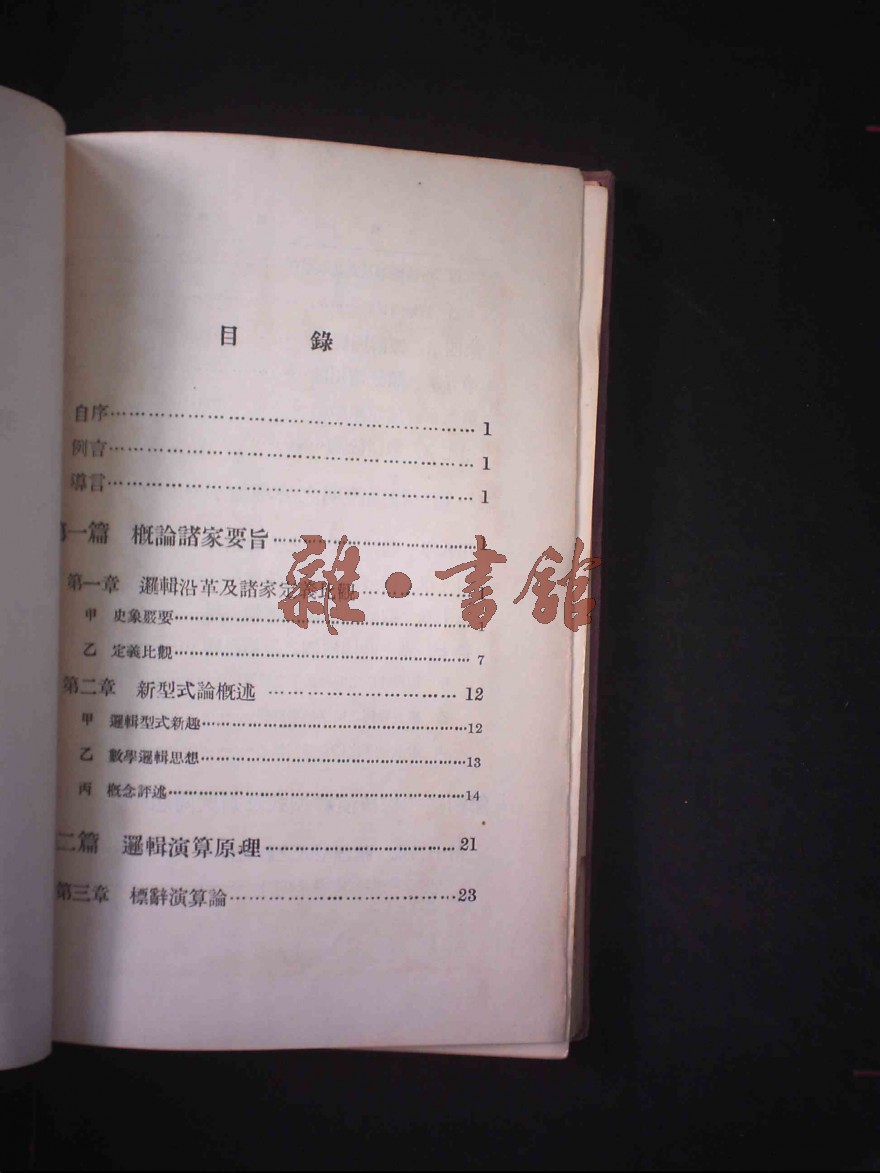 目錄
自序……………………………………………… 1
例言……………………………………………… 1
導言……………………………………………… 1
第一篇 概論諸家要旨…………………………… 1
第一章 邏輯沿革及諸家定義比觀……………… 1
甲 史象叢要……………………………………… 1
乙 定義比觀……………………………………… 7
第二章 新型式論概述 ………………………… 12
甲 邏輯型式新趣…………………………………12
乙 數學邏輯思想…………………………………13
丙 概念評述………………………………………14
二篇 邏輯演算原理…………………………… 21
第三章 標辭演算論………………………………23
雜·書館